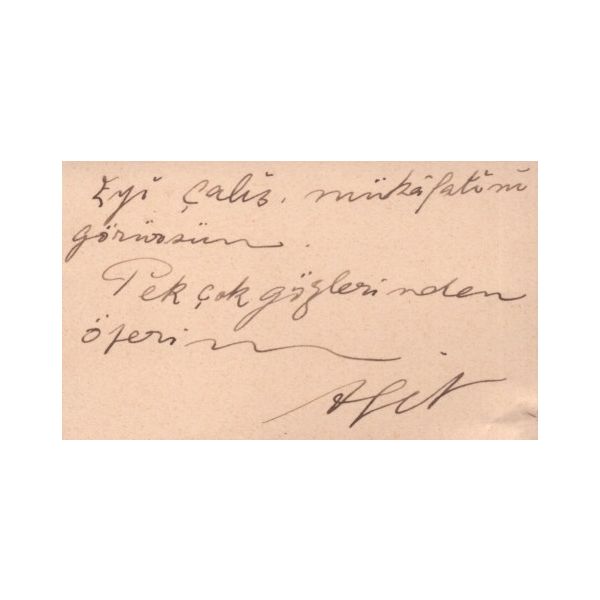 Eyi çalis. mükâfatını
görürsün.
Pek çok gözlerinden
öperim